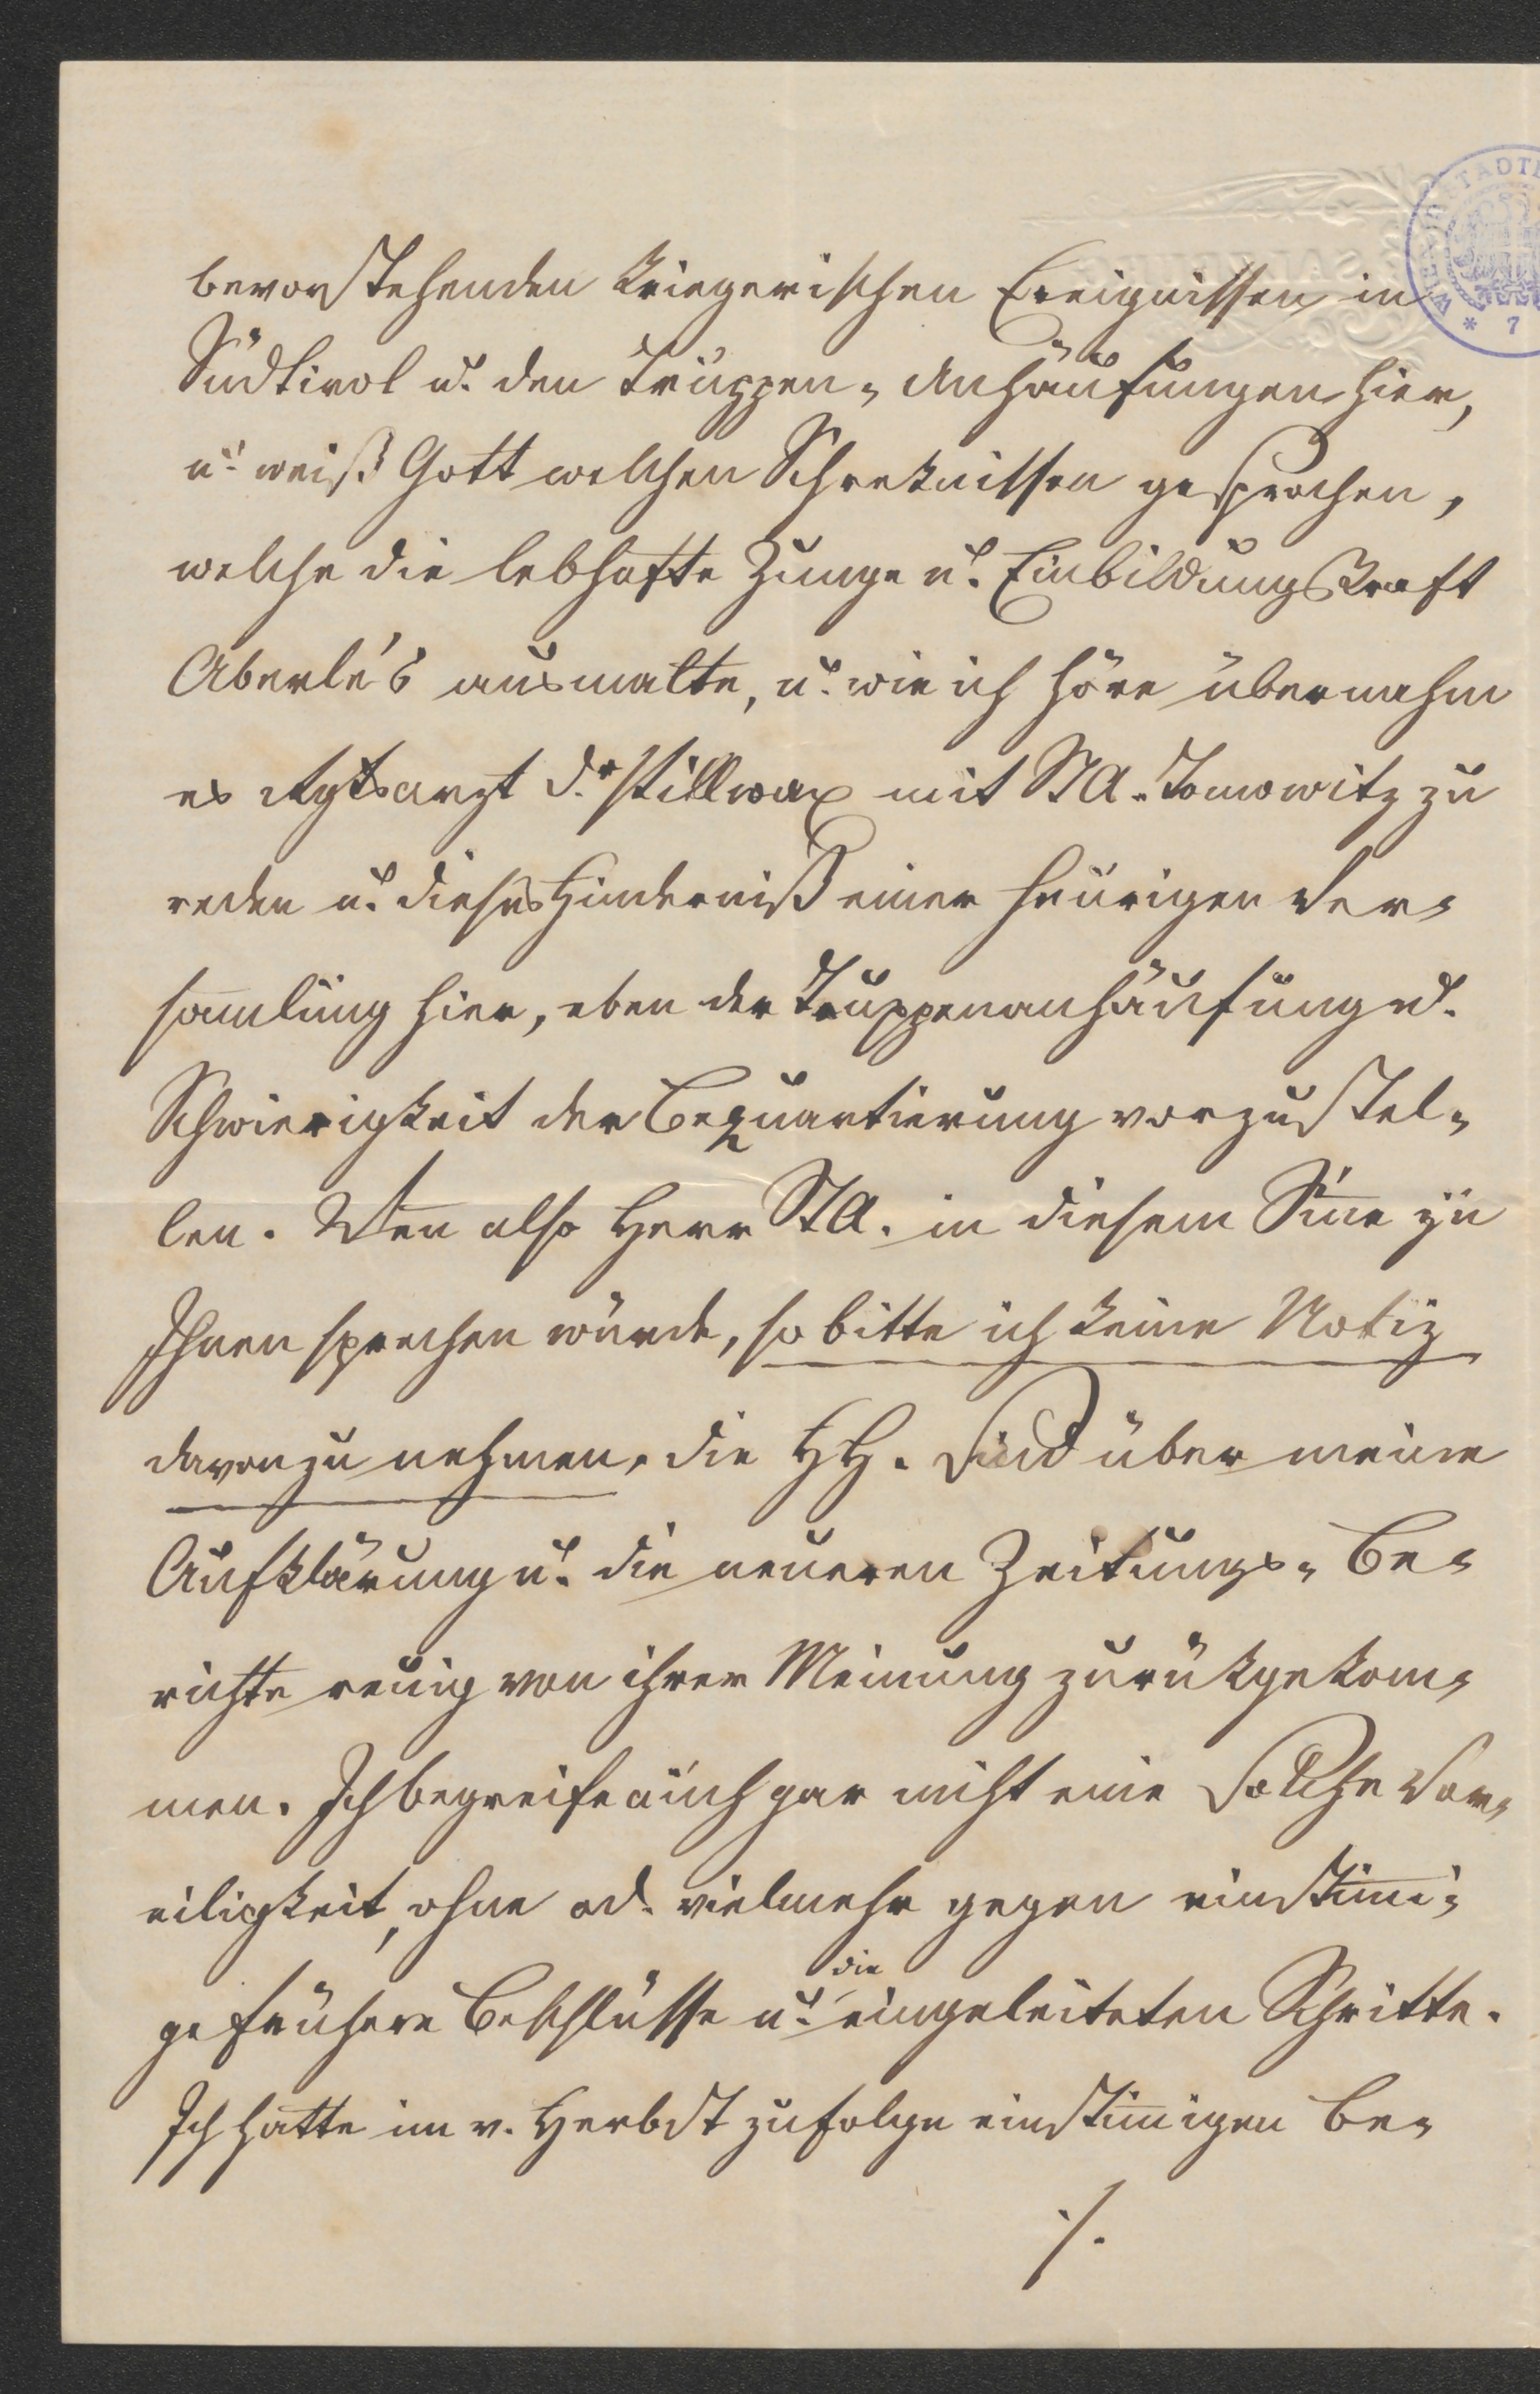 bevorstehenden kriegerischen Ereignissen in
Südtirol u. den Truppen-Anhäufungen hier,
u. weiß Gott welchen Schreknissen gesprochen,
welche die lebhafte Zunge u. Einbildungskraft
Aberle's ausmalte, u. wie ich höre übernahm
es Rgtsarzt Dr Stillwax mit StA. Tomowitz zu
reden u. dieses Hinderniß einer heurigen Ver-
sam̅lung hier, eben der Truppenanhäufung u.
Schwierigkeit der Bequartierung vorzustel-
len. Wen̅ also Herr StA. in diesem Sin̅e zu
Ihnen sprechen würde, so bitte ich keine Notiz
davon zu nehmen, die HH. sind über meine
Aufklärung u. die neueren Zeitungs-Be-
richte reuig von ihrer Meinung zurükgekom-
men. Ich begreife auch gar nicht eine solche Vor-
eiligkeit, ohne od. vielmehr gegen einstim̅i-
ge frühere Beschlüsse u. die eingeleiteten Schritte.
Ich hatte im v. Herbst zufolge einstim̅igen Be-
./.
SALZBURG
* 7